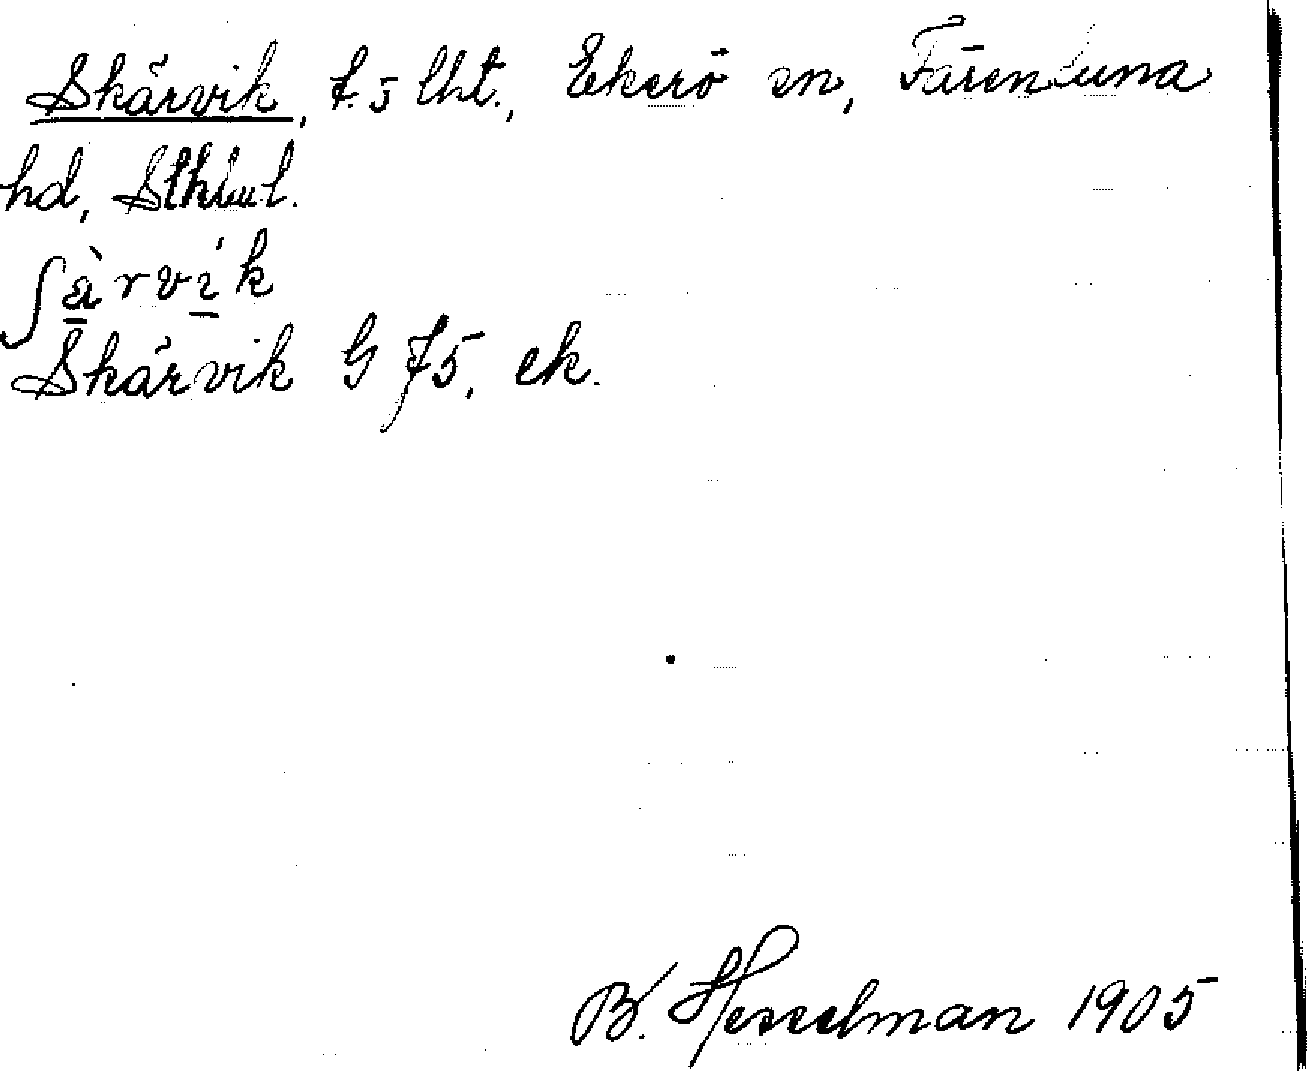 Skärvik, t. 5 lht., Ekerö sn, Färentuna
hd, Sthlml.
ʃä̀rvík
Skärvik G 75, ek.
B. Hesselman 1905